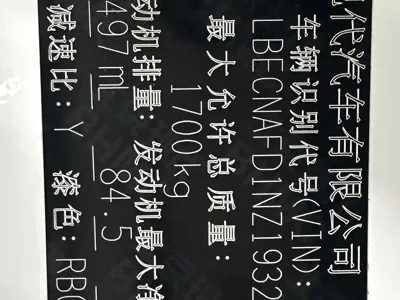 代汽车有限公司
车辆识别代号(VIN):
LBECNAFD1NZ1932
最大允许总质量:
1700kg
动机排量: 发动机最大净
497mL 84.5
减速比: Y 漆色: RB